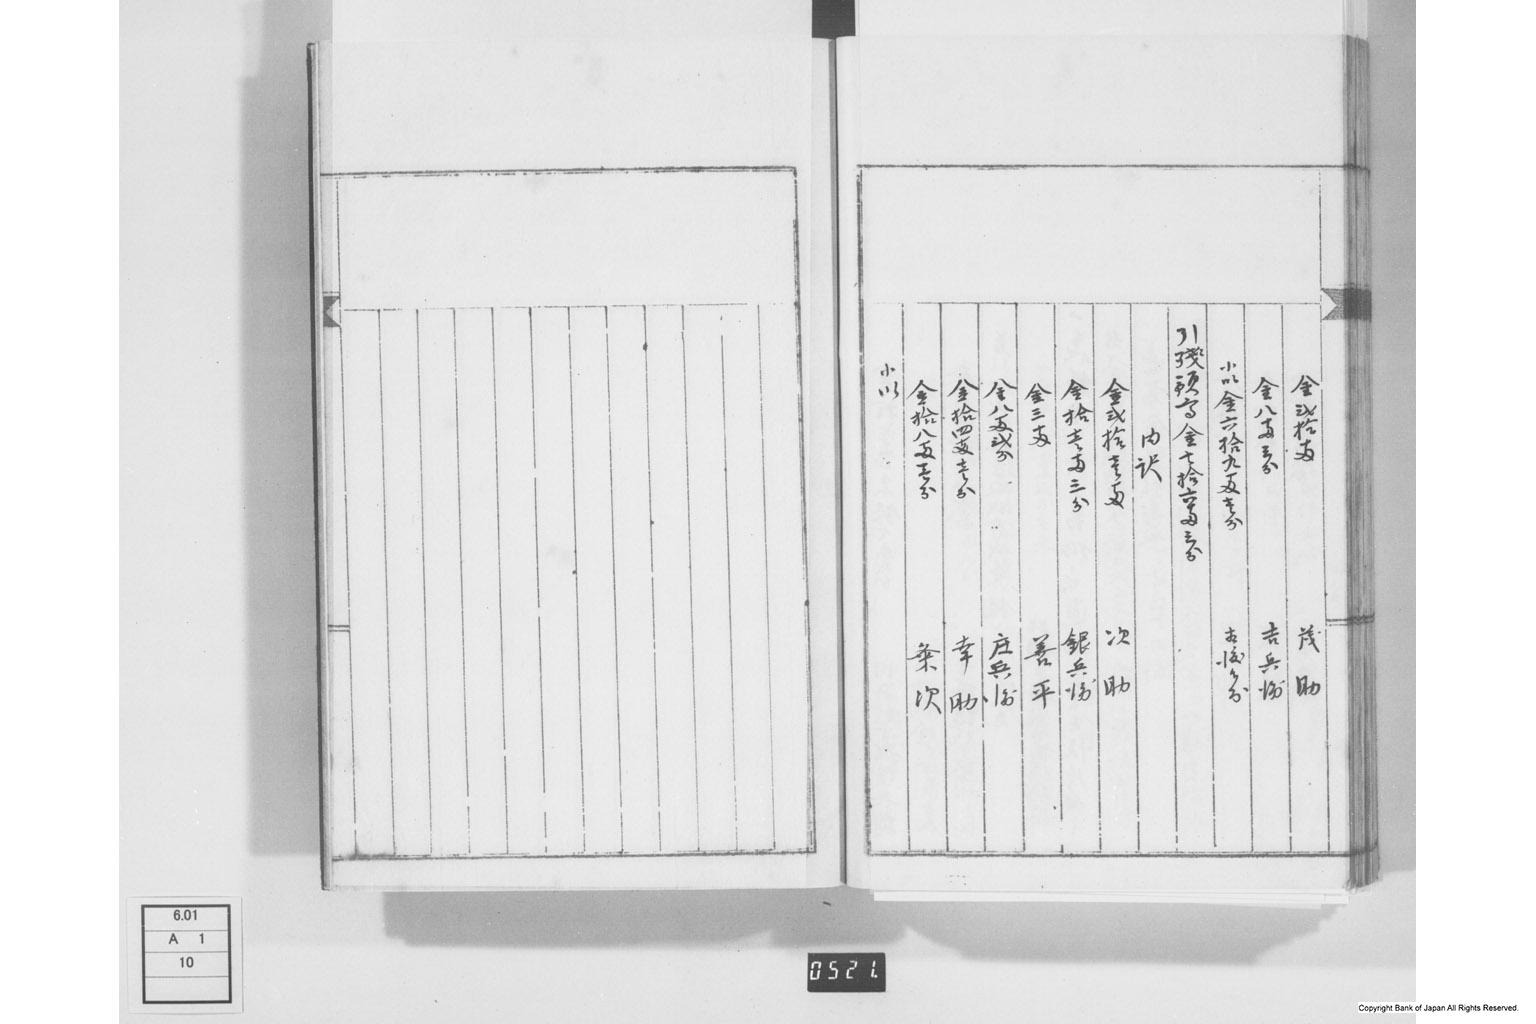 金弐拾両 茂助
金八両三分 吉兵衛
小以金六拾九両壱分
引残預高金七拾六両三分
内訳
金弐拾壱両 次助
金拾壱両三分 銀兵衛
金三両 善平
金八両弐分 庄兵衛
金拾四両壱分 幸助
金拾八両壱分 粂次
小以
6.01
A 1
10
0521.
Copyright Bank of Japan All Rights Reserved.